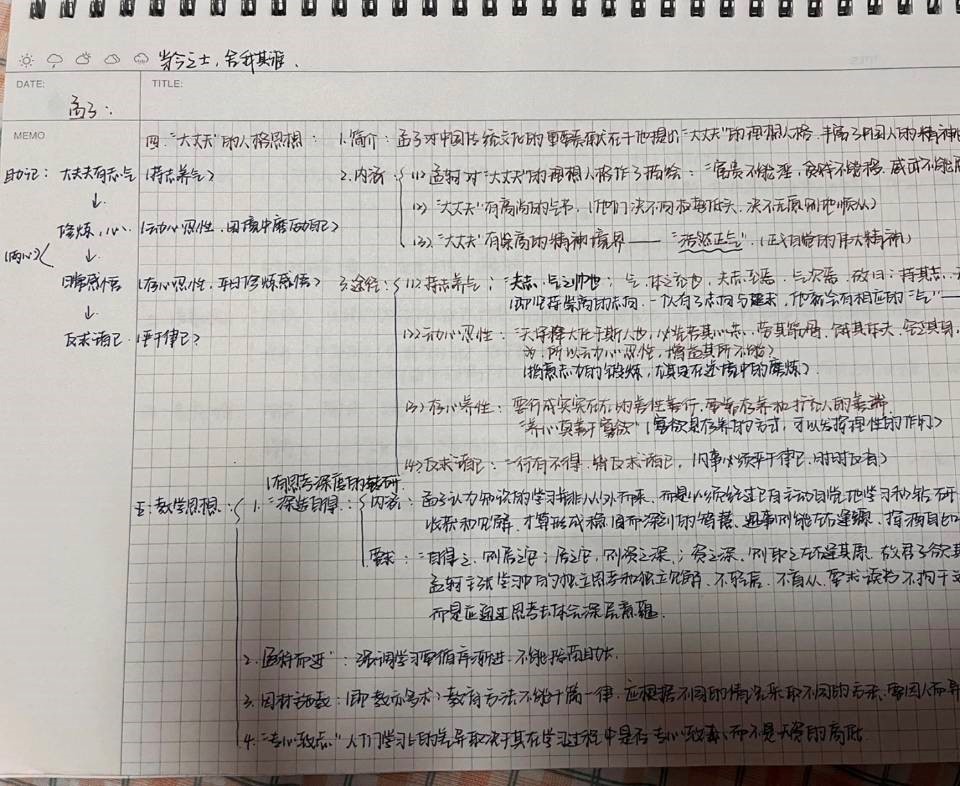 当今之士，舍我其谁．
DATE: TITLE:
孟子：
MEMO
四．"大丈夫"的人格思想： 1.简介：孟子对中国传统文化的重要贡献在于他提出"大丈夫"的理想人格．丰富了中国人的精神
助记：大丈夫有志气（持志养气）
↓
修炼，心（动心忍性，困境中磨砺自己）
（两心）
↓
日常感悟（存心忍性，平日修炼感悟）
↓
反求诸己（严于律己）
2.内容
(1)孟轲对"大丈夫"的理想人格作了描绘："富贵不能淫，贫贱不能移，威武不能
(2)"大丈夫"有高尚的气节．（他们决不向权势低头、决不无原则地顺从）
(3)"大丈夫"有崇高的精神境界——"浩然正气"．
3.途径：
(1)持志养气；"夫志，气之帅也；气，体之充也，夫志至焉，气次焉，故曰：持其志．
（即坚持崇高的志向．一个人有了志向与追求，他就会有相应的"气"——
(2)动心忍性："天将降大任于斯人也，必先苦其心志，劳其筋骨，饿其体夫，空乏其身，
所以动心忍性，增益其所不能）
（指意志力的锻炼，尤其是在逆境中的磨炼）．
(3)存心养性：要行成实实在在的善性善行，要靠存养和扩充人的善端．
"养心莫善于寡欲"（寡欲是存养的方式，可以发挥理性的作用）
(4)反求诸己："行有不得，皆反求诸己，（凡事必须严于律己，时时反省）
五．教学思想：
（有思考深度的钻研
1."深造自得：
内容：孟子认为知识的学习并非从外而来，而是必须经过自己主动自觉地学习和钻研
收获和见解，才算形成稳固而深刻的智慧，遇事则能左右逢源，挥洒自
要求："自得之，则居之安；居之安，则资之深；资之深，则取之左右逢其原，故君子欲其
孟轲主张学习中的独立思考和独立见解，不轻信、不盲从，要求读书不拘于文
而是应通过思考去体会深层意蕴．
2."盈科而进"：强调学习要循序渐进，不能拔苗助长．
3.因材施教：（即教亦多术）教育方法不能千篇一律，应根据不同的情况采取不同的方法，要因人而异
4."专心致志"人们学习上的差异取决于其在学习过程中是否专心致志，而不是天资的高低